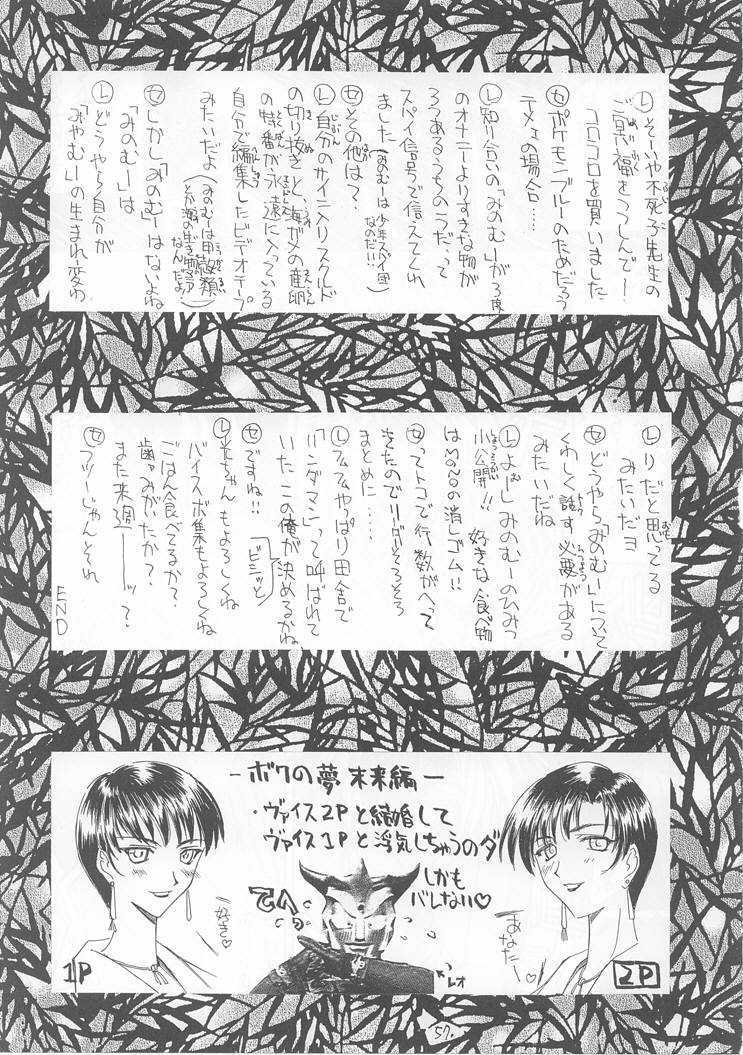 Ⓛそーいや不死子先生の
ご冥福をうつしんでー
コロコロを買いました
㊛ポケモンブルーのためだろう
テメェの場合……
Ⓛ知り合いの「みのむし」が3度
のオナニーよりすきな物が
3つあるうちの1つだって
スパイ信号で伝えてくれ
ました(みのむしは少年スパイ団なのだ!!)
㊛その他は?
Ⓛ自分のサイン入リスクルド
の切り抜きと、海ガメの産卵
の特番がう遠に入っている
自分で編集したビデオテープ
みたいだよ(みのむしは甲殻類とか海の生き物マニアなんだよ)
㊛しかし「みのむし」はないよね
「みのむし」は
Ⓛどうやら自分が
「みやむし」の生まれ変わ
Ⓛりだと思ってる
みたいだヨ
㊛どうやら「みのむし」について
くわしく話す必要がある
みたいだね
Ⓛよーしみのむーのひみつ
大公開!!好きな食べ物
はMONOの消しゴム!!
㊛ってトコで行数がへって
きたのでリーダーそろそろ
まとめに……
Ⓛフムフムやっぱり田舎で
「バンダマン」って呼ばれて
いた この俺が決めるかね
㊛ですね!!ビシッと
Ⓛそちゃんもよろしくね
バイスボ集もよろしくね
ごはん食べてるか?
歯ァみがいたか?
また来週ーーッ?
㊛フツーじゃんそれ
END
-ボクの夢 未来編-
・ヴァイス2Pと結婚して
ヴァイス1Pと浮気しちゃうのダ
しかも
バレない♡
てへ
レオ
好き♡
あなたー♡
1P
2P
57.